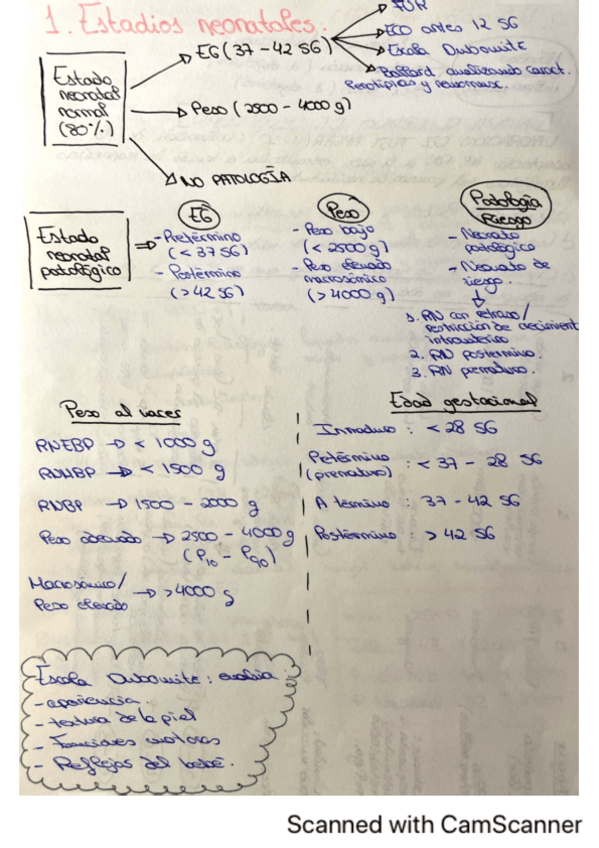 1. Estadios neonatales.
FUR
EG (37-42 SG)
ECO antes 12 SG
Escala Dubowitz
Ballard analizando caract.
y neuromusc.
Estado
neonatal
normal
(80%)
Peso (2500 - 4000 g)
NO PATOLOGÍA
Estado
neonatal
patológico
EG
- Pretérmino
(< 37 SG)
- Postérmino
(> 42 SG)
Peso
- Peso bajo
(< 2500 g)
- Peso elevado
macrosómico
(> 4000 g)
Patología
riesgo
- Neonato
patológico
- Neonato de
riesgo.
1. RN con retraso/
restricción de crecimient
intrauterino
2. RN postermino.
3. RN prematuro.
Peso al nacer
RNEBP → < 1000 g
RNMBP → < 1500 g
RNBP → 1500 - 2000 g
Peso adecuado → 2500 - 4000 g
(P10 - P90)
Macrosómico/
Peso elevado → > 4000 g
Edad gestacional
Inmaduro : < 28 SG
Petérmino
(prematuro) : < 37 - 28 SG
A término : 37 - 42 SG
Postérmino : > 42 SG
Escala Dubowitz : evalúa
- apariencia
- textura de la piel
- Funciones motoras
- Reflejos del bebé.
Scanned with CamScanner